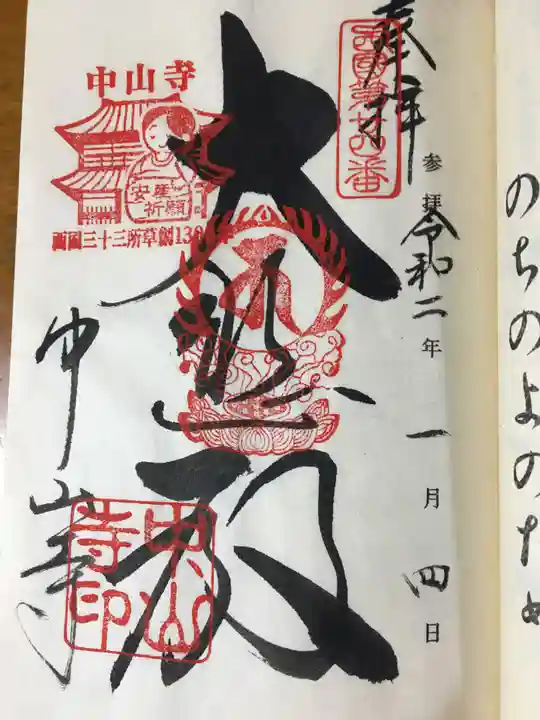 のちのよのため
奉拝
西國第廿四番
参拝令和二年一月四日
大悲殿
中山寺
安産
祈願
西国三十三所草創13
中山寺
中山寺印